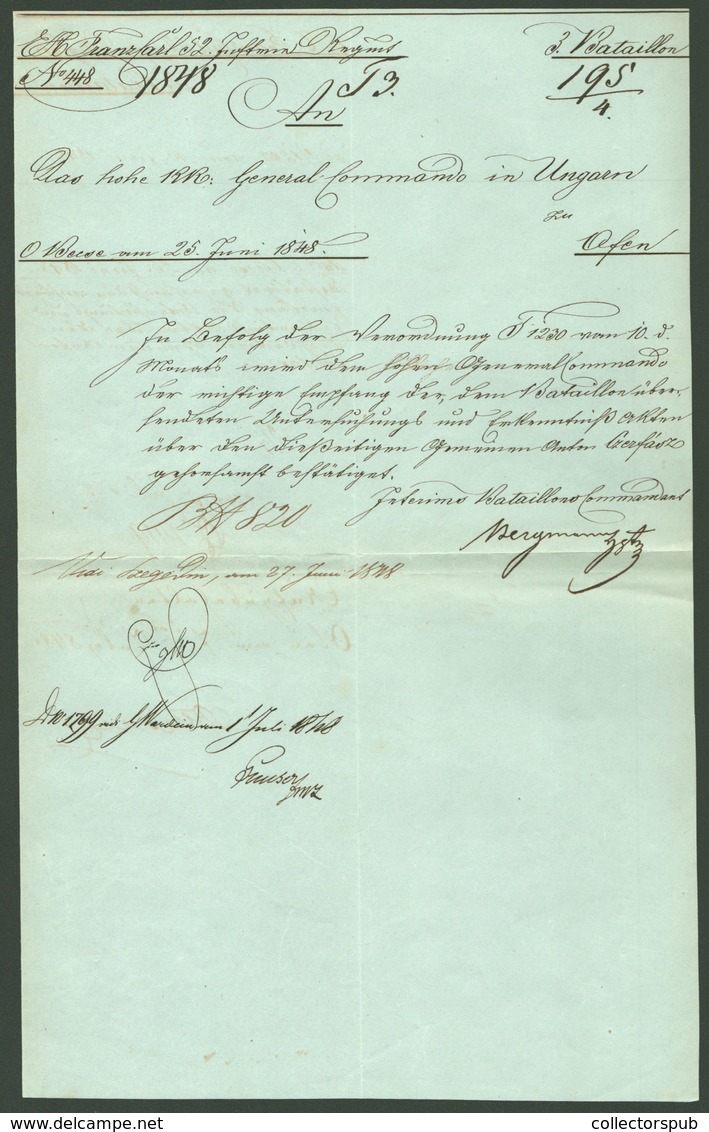 EH Franz Carl 52. Inftrie Regmt 3. Bataillon
No 448 1848 T 3. 195/4.
An
Das hohe KK: General Commando in Ungarn
zu
O Becse am 25. Juni 1848. Ofen
In Befolg der Verordnung T 1230 vom 10. d.
Monats wird dem hohen General Commando
der richtige Empfang der, dem Bataillon über-
sendeten Untersuchungs und Erkenntniß Akten
über den dießeitigen Gemeinen Anton
gehorsamst bestätiget.
Interims Bataillons Commandant
Bergmann
820
Szegedin, am 27. Juni 1848
No 1799 am 1 Juli 1848
collectorspub